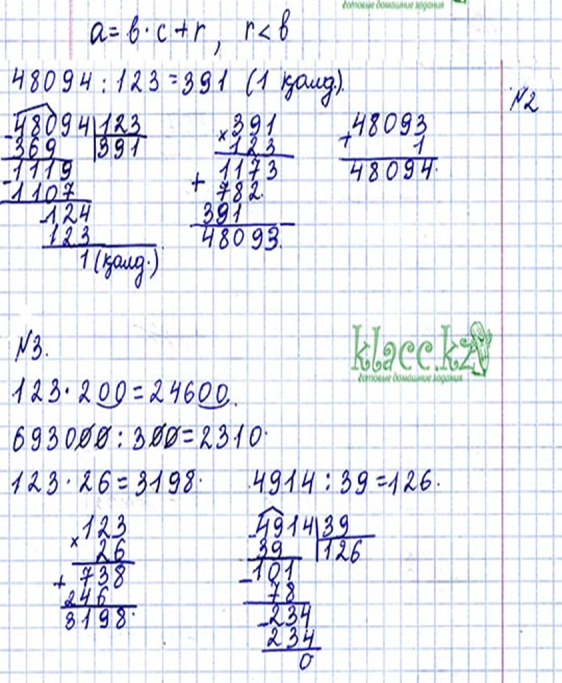 готовые домашние задания
a = b · c + r, r < b
48094 : 123 = 391 (1 қалд.)
№2
48094 | 123
- 369 | 391
- 1119
1107
124
123
1 (қалд.)
× 391
123
1173
+ 782
391
48093
48093
+ 1
48094
№3.
klacc.kz
готовые домашние задания
123 · 200 = 24600.
693000 : 300 = 2310.
123 · 26 = 3198.
4914 : 39 = 126.
× 123
26
+ 738
246
3198.
- 4914 | 39
39 | 126
- 101
78
- 234
234
0